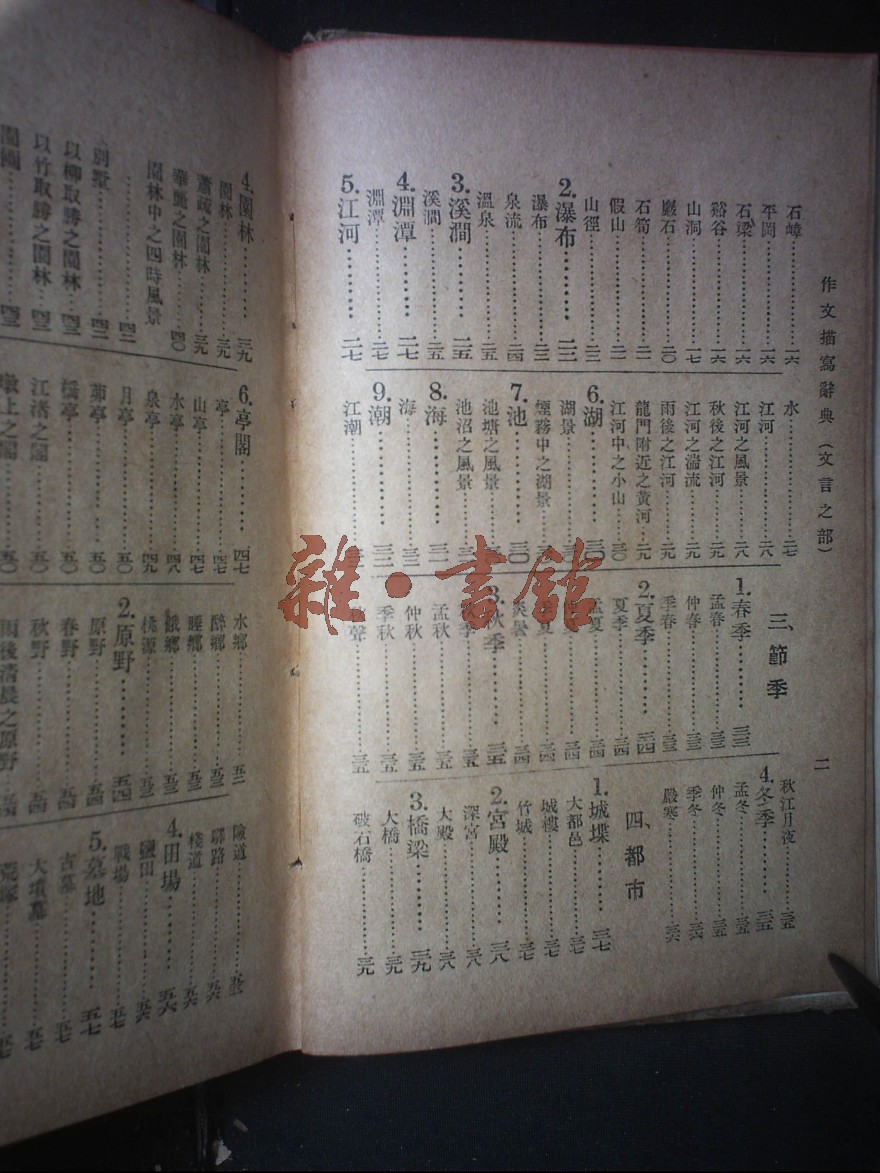 作文描寫辭典（文言之部）
二
石嶂……一六
平岡……一六
石梁……一六
谿谷……一六
山洞……一七
巖石……二〇
石筍……二一
假山……二一
山徑……二二
2.瀑布……二三
瀑布……二三
泉流……二四
溫泉……二五
3.溪澗……二五
溪澗……二五
4.淵潭……二七
淵潭……二七
5.江河……二七
水……二七
江河……二八
江河之風景……二八
秋後之江河……二九
江河之湍流……二九
雨後之江河……二九
龍門附近之黃河……二九
江河中之小山……三〇
6.湖……三〇
湖景
煙霧中之湖景
7.池……三〇
池塘之風景
池沼之風景
8.海……三一
海……三二
9.潮……三二
江潮
三、節季
1.春季……三三
孟春……三三
仲春……三三
季春……三三
2.夏季……三四
夏季……三四
孟夏……三四
三四
夏……三四
炎暑……三四
3.秋季……三五
季……三五
孟秋……三五
仲秋……三五
季秋……三五
聲……三五
秋江月夜……三五
4.冬季……三五
孟冬……三五
仲冬……三六
季冬……三六
嚴寒……三六
四、都市
1.城堞……三七
大都邑……三七
城樓……三七
竹城……三七
2.宮殿……三八
深宮……三八
大殿……三八
3.橋梁……三九
大橋……三九
破石橋……三九
4.園林……三九
園林……三九
蕭疏之園林……三九
華麗之園林……四〇
園林中之四時風景
……四二
別墅……四二
以柳取勝之園林……四三
以竹取勝之園林……四三
……四三
6.亭閣……四七
亭……四七
山亭……四七
水亭……四八
泉亭……四九
月亭……五〇
茆亭……五〇
橋亭……五〇
江渚之閣……五〇
墩上之閣……五〇
水鄉……五二
醉鄉……五三
睡鄉……五三
桃源……五三
2.原野……五四
原野……五四
春野……五四
秋野……五四
雨後清晨之原野……五四
險道……五五
驛路……五六
棧道……五六
4.田場……五六
鹽田……五六
戰場……五七
5.墓地……五七
古墓……五七
大墳墓……五七
荒塚……五七
雜·書館